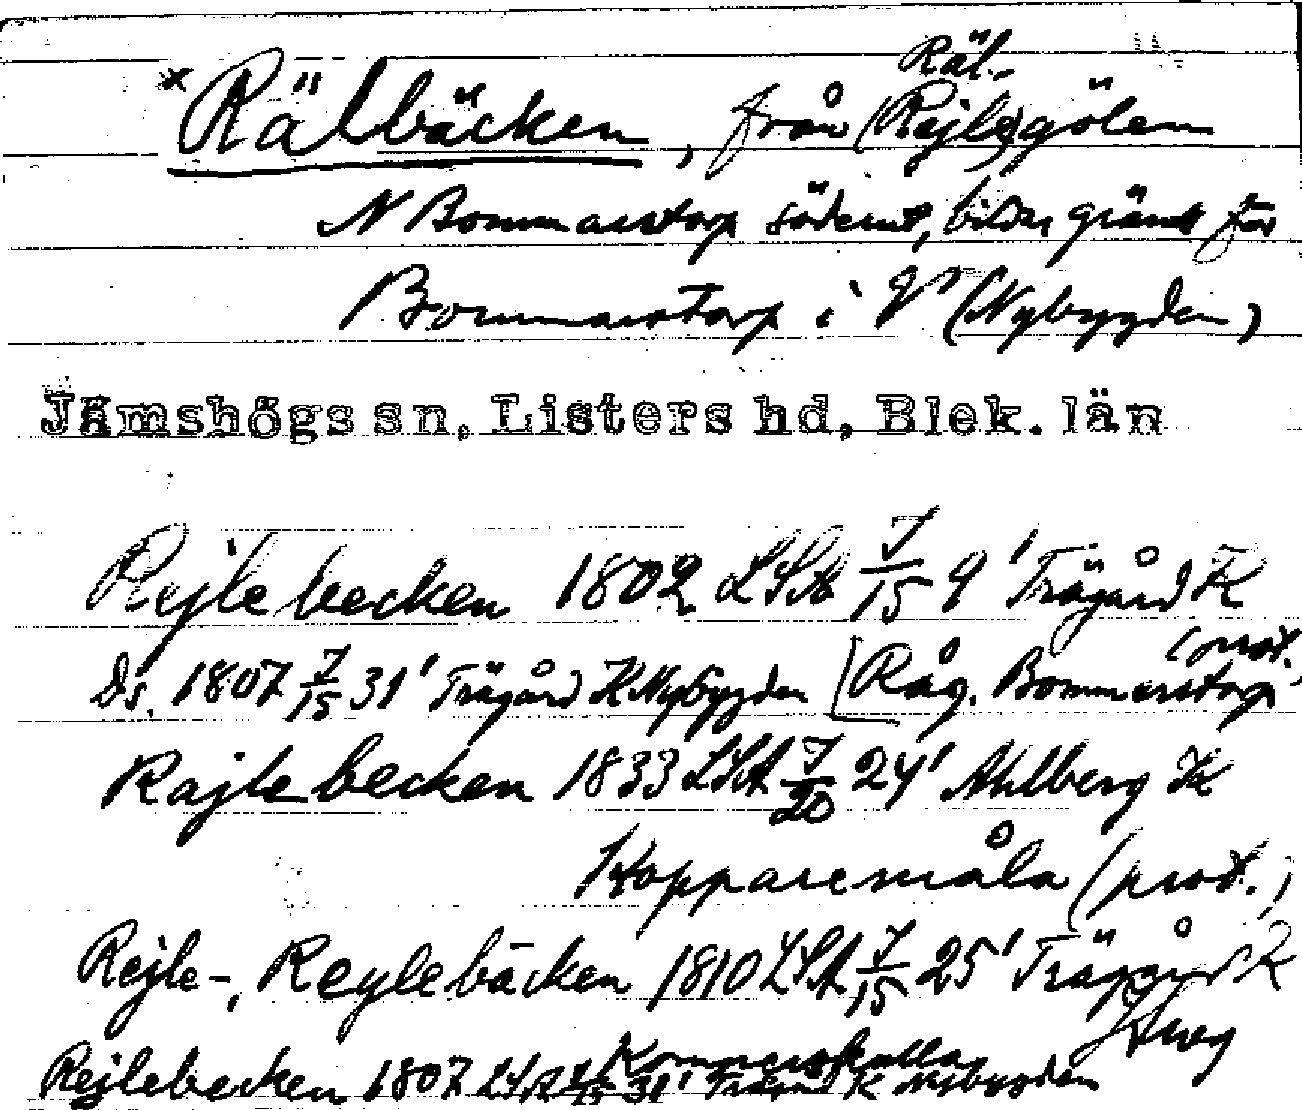 Räl-
*Rälbäcken, från (Rejle)gölen
N Bommerstorp söderut, bildar gräns för
Bommerstorp i V (Nybygden)
Jämshögs sn, Listers hd, Blek. län
Rejlebecken 1802 LSA 7/15 9' Trägård K
(prot.
Ds. 1807 7/15 31' Trägård K Nybygden [Råg. Bommerstorp
Rajlebecken 1833 LSA 7/20 24' Ahlberg K
Kopparemåla (prot.)
Rejle-, Reylebäcken 1810 LSA 7/15 25' Trägård K
Rejlebecken 1807 LSA 7/15 31' Trägård K Nybygden